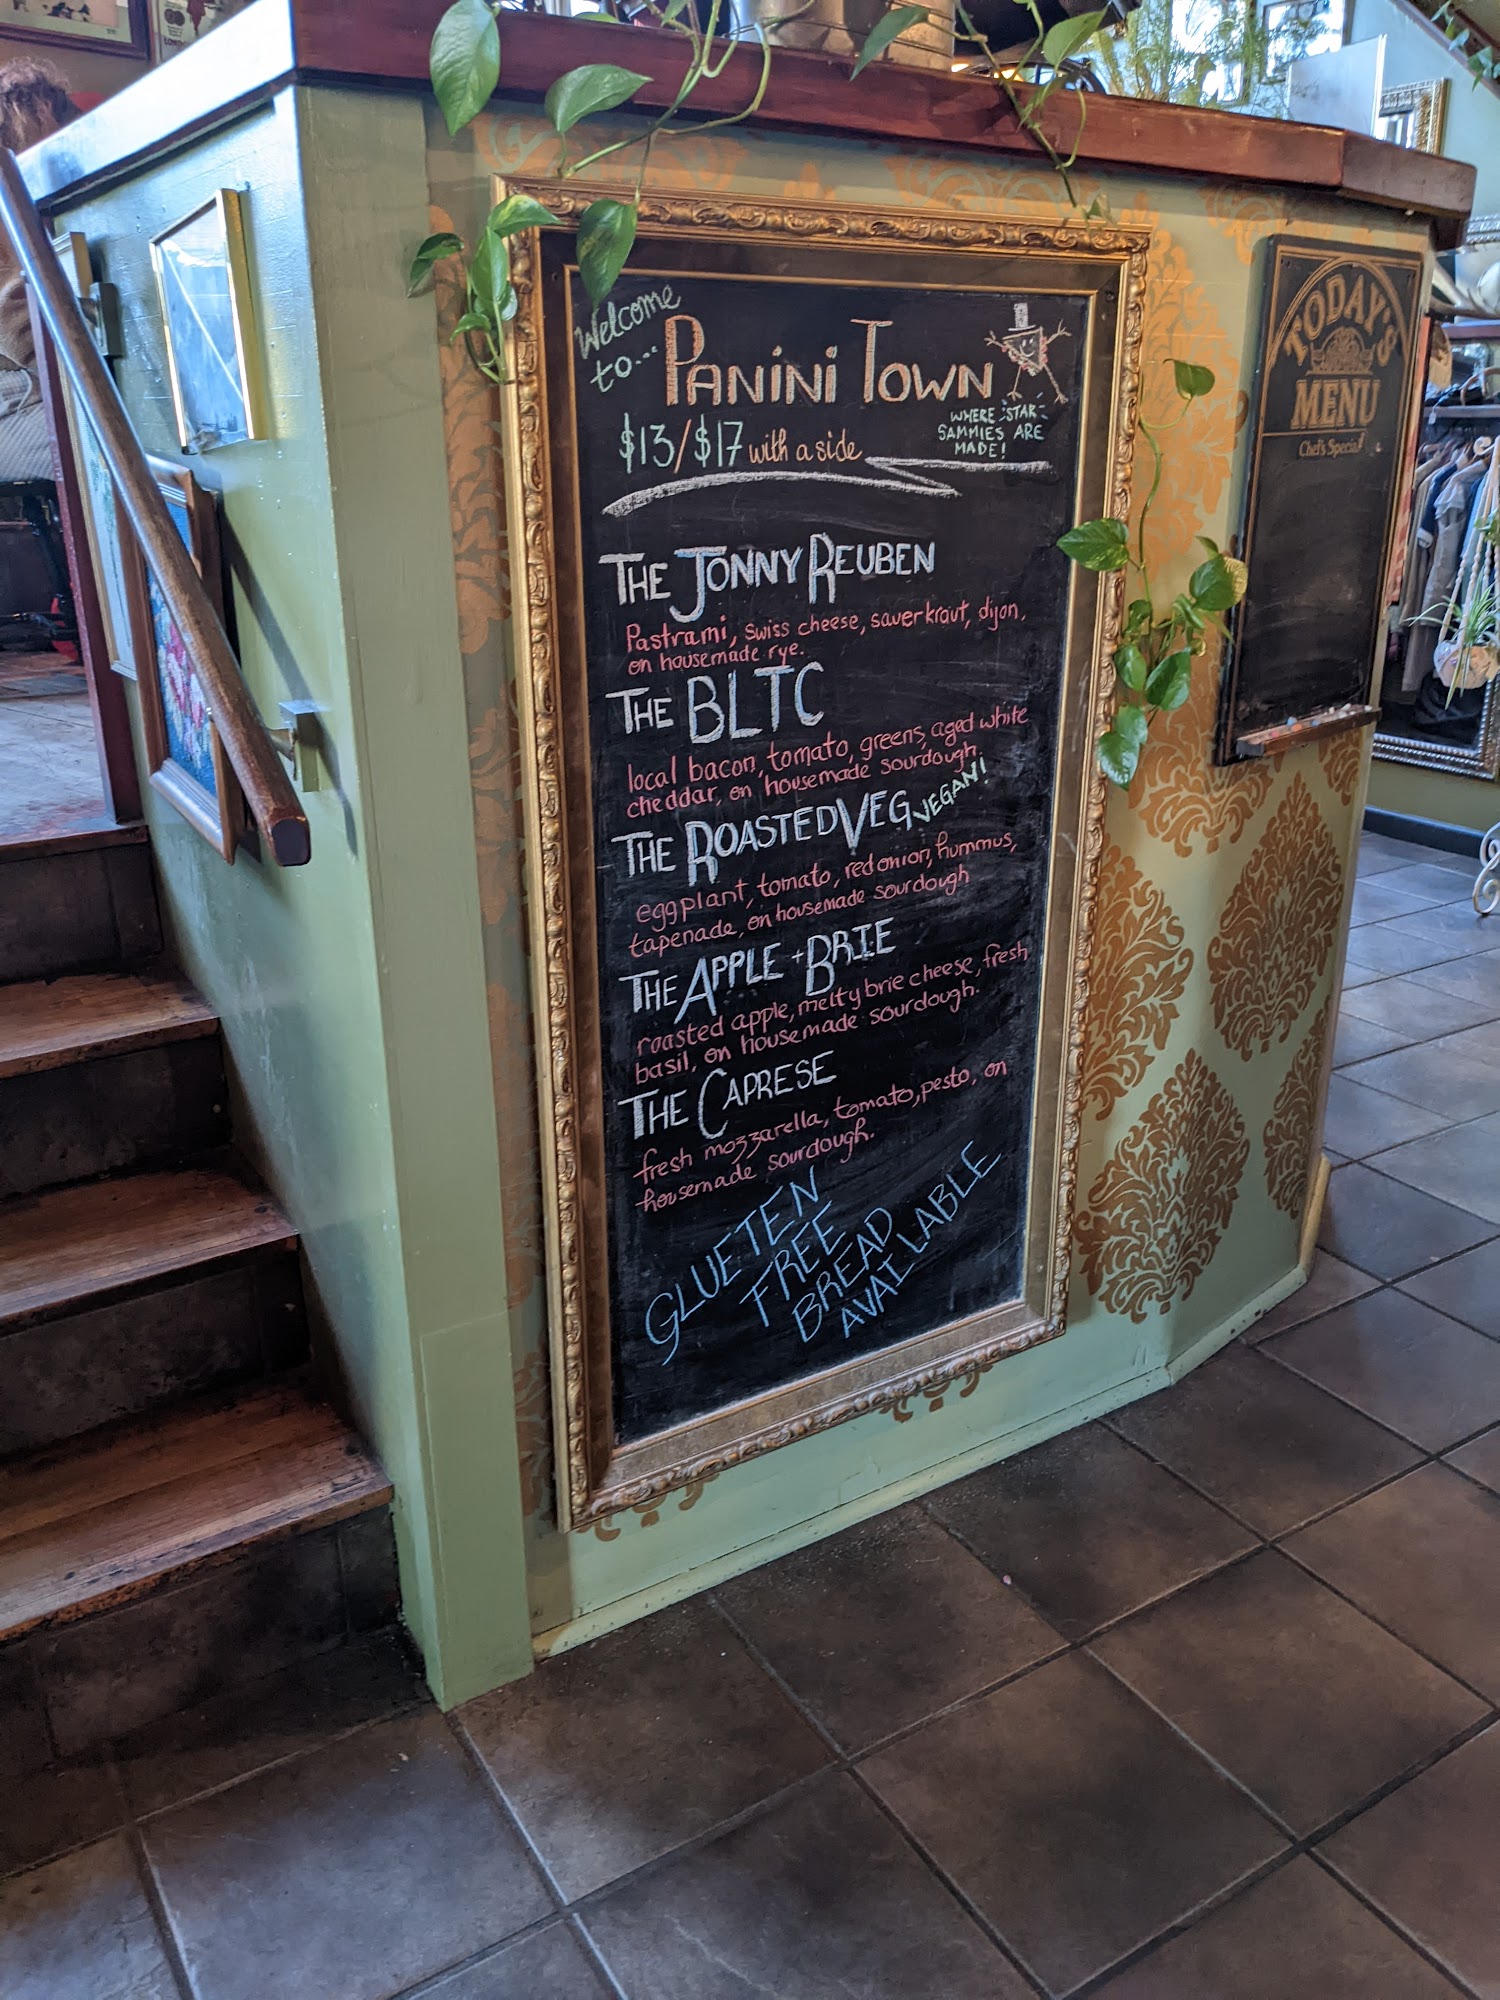 Welcome
to...
PANINI TOWN
$13/$17 with a side
WHERE STAR
SAMMIES ARE
MADE!
THE JONNY REUBEN
Pastrami, swiss cheese, sauerkraut, dijon,
on housemade rye.
THE BLTC
local bacon, tomato, greens, aged white
cheddar, on housemade sourdough.
THE ROASTED VEG VEGAN!
eggplant, tomato, red onion, hummus,
tapenade, on housemade sourdough
THE APPLE + BRIE
roasted apple, melty brie cheese, fresh
basil, on housemade sourdough.
THE CAPRESE
fresh mozzarella, tomato, pesto, on
housemade sourdough.
GLUETEN
FREE
BREAD
AVAILABLE
TODAY'S
MENU
Chef's Special